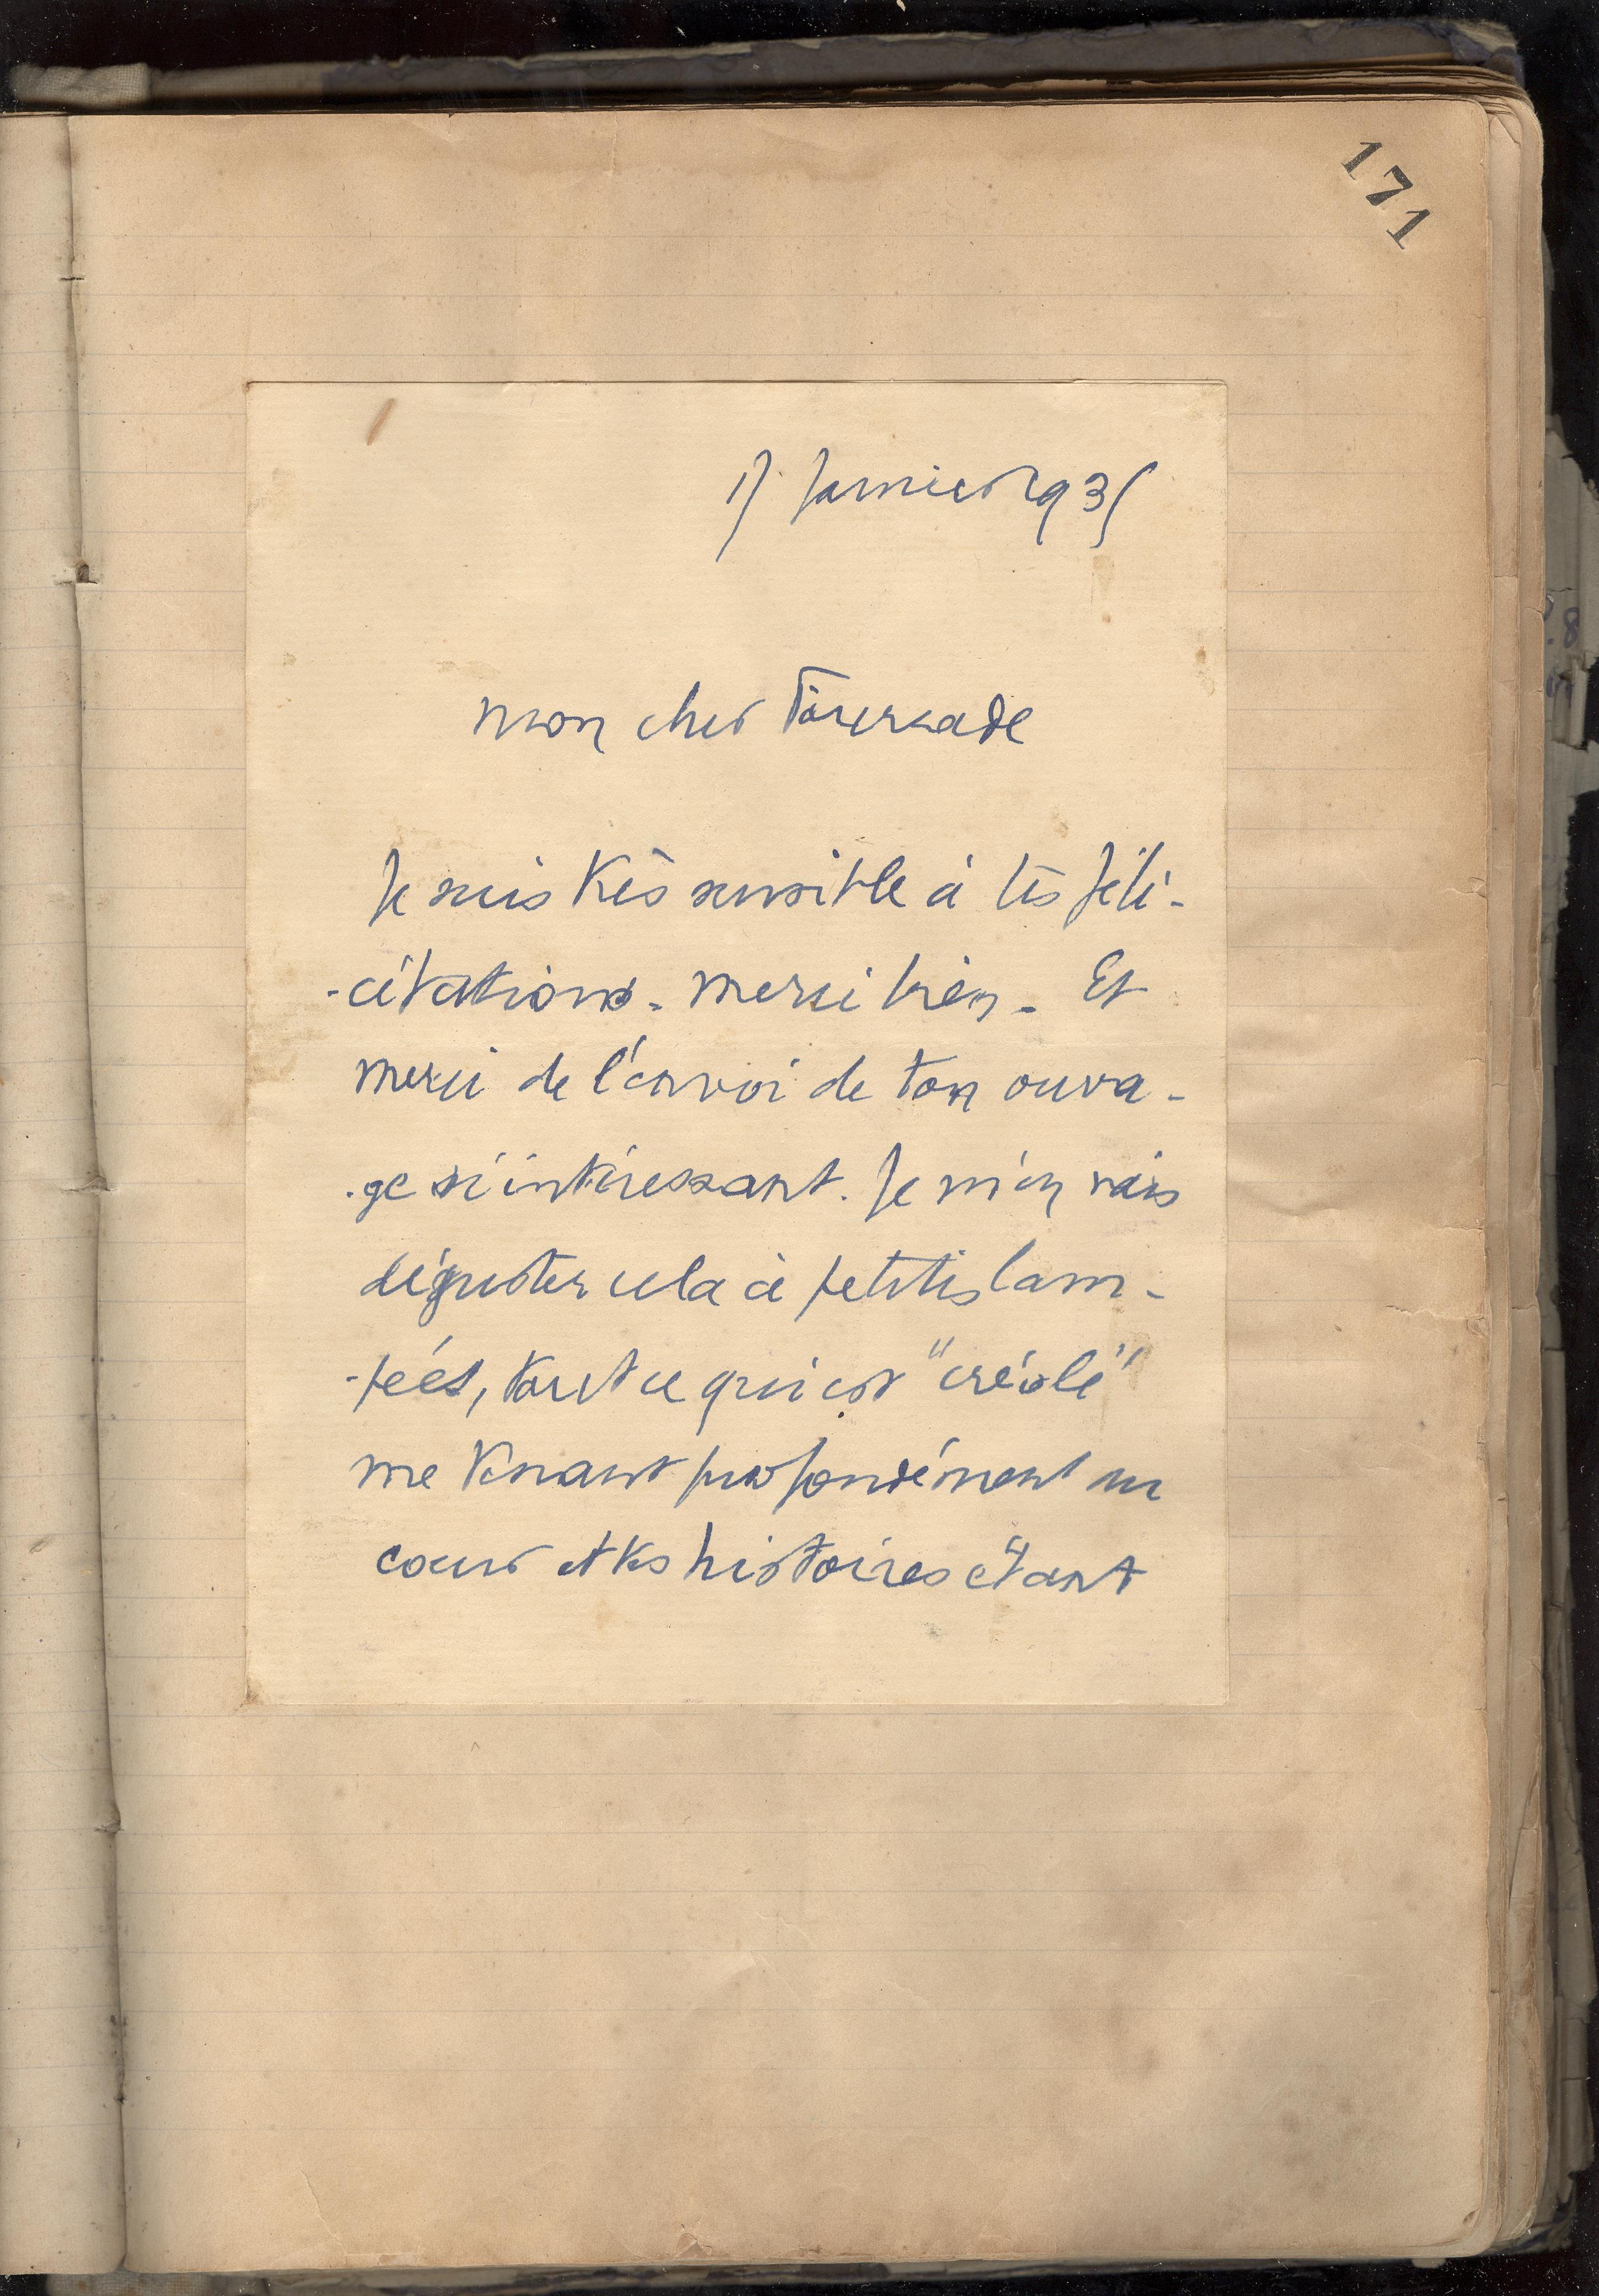 171
17 Janvier 1935
mon cher Fourcade
Je suis très sensible à tes féli-
-citations. merci bien. Et
merci de l'envoi de ton ouvra-
-ge si intéressant. Je m'en vais
déguster cela à petites lam-
-pées, tout ce qui est "créole"
me tenant profondément au
coeur et tes histoires étant